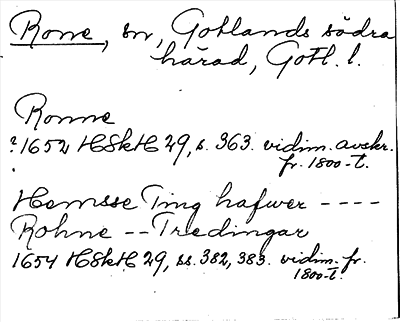 Rone, sn, Gotlands södra
härad, Gotl. l.
Ronne
?1652 HSkH 29, s. 363. vidim. avskr.
fr. 1800-t.
Hemsse Ting hafwer ----
Rohne -- Tredingar
1654 HSkH 29, ss. 382, 383. vidim. fr.
1800-t.